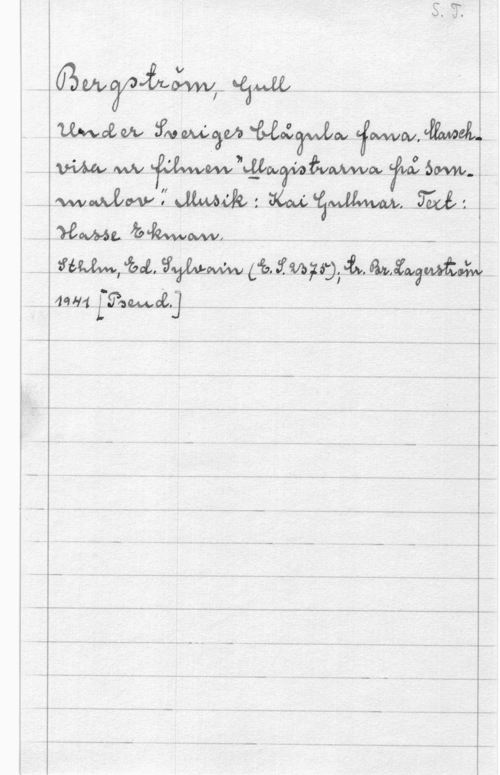 S. T.
Bergström, Gull
Under Sveriges blågula fana. Marsch-
visa ur filmen "Magistrarna på som-
marlov". Musik: Kai Gullmar. Text:
Hasse Ekman.
Sthlm, Ed. Sylvain (E.S. 2375), tr. Br. Lagerström
1941 [Pseud.]